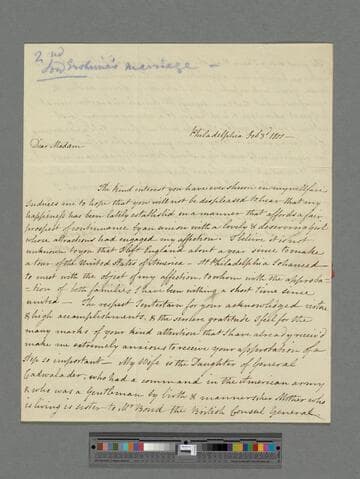 2nd
Lord Erskine's marriage –
Philadelphia Feby 3d 1800 –
Dear Madam
The kind interest you have ever shewn in my welfare
induces me to hope that you will not be displeased to hear that my
happiness has been lately established in a manner that affords a fair
prospect of continuance by an union with a lovely & deserving girl
whose attractions had engaged my affection. I believe it is not
unknown to you that I left England about a year since to make
a tour of the United States of America – At Philadelphia I chanced
to meet with the object of my affection to whom with the approba-
-tion of both families I have been within a short time since
united – The respect I entertain for your acknowledged virtue
& high accomplishments, & the sincere gratitude I feel for the
many marks of your kind attention that I have already receiv'd
make me extremely anxious to receive your approbation of a
step so important – My Wife is the Daughter of General
Cadwalader, who had a command in the American army
& who was a Gentleman by birth & manners her Mother who
is living is sister to Mr Bond the British Consul General